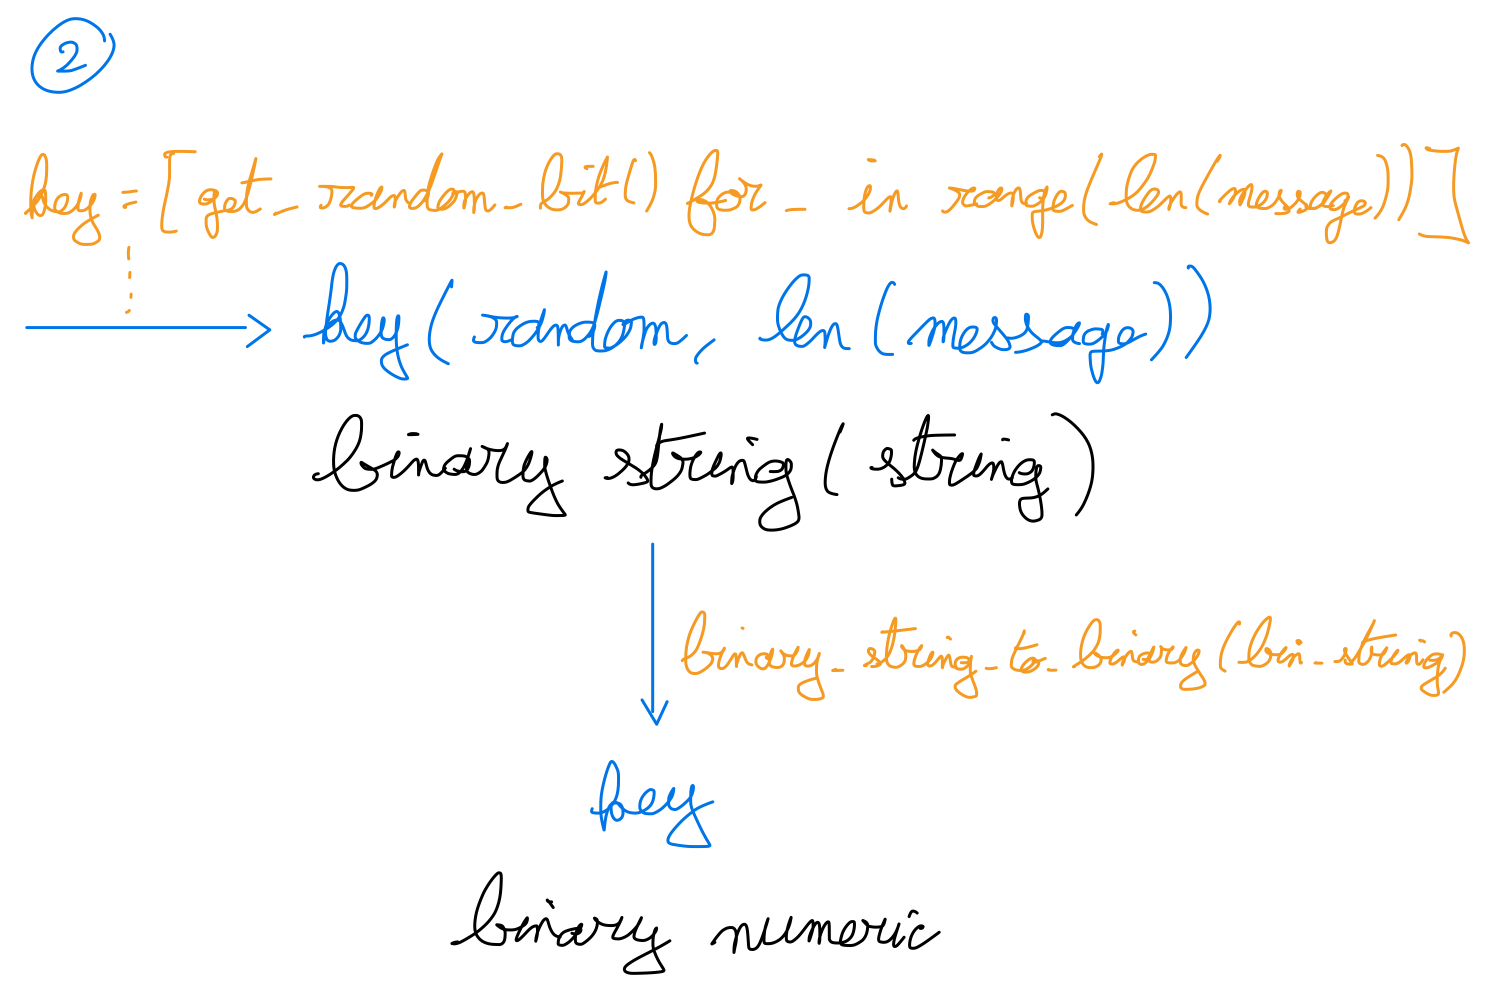 2
key = [get_random_bit() for _ in range(len(message))]
key(random, len(message))
binary string(string)
binary_string_to_binary(bin_string)
key
binary numeric